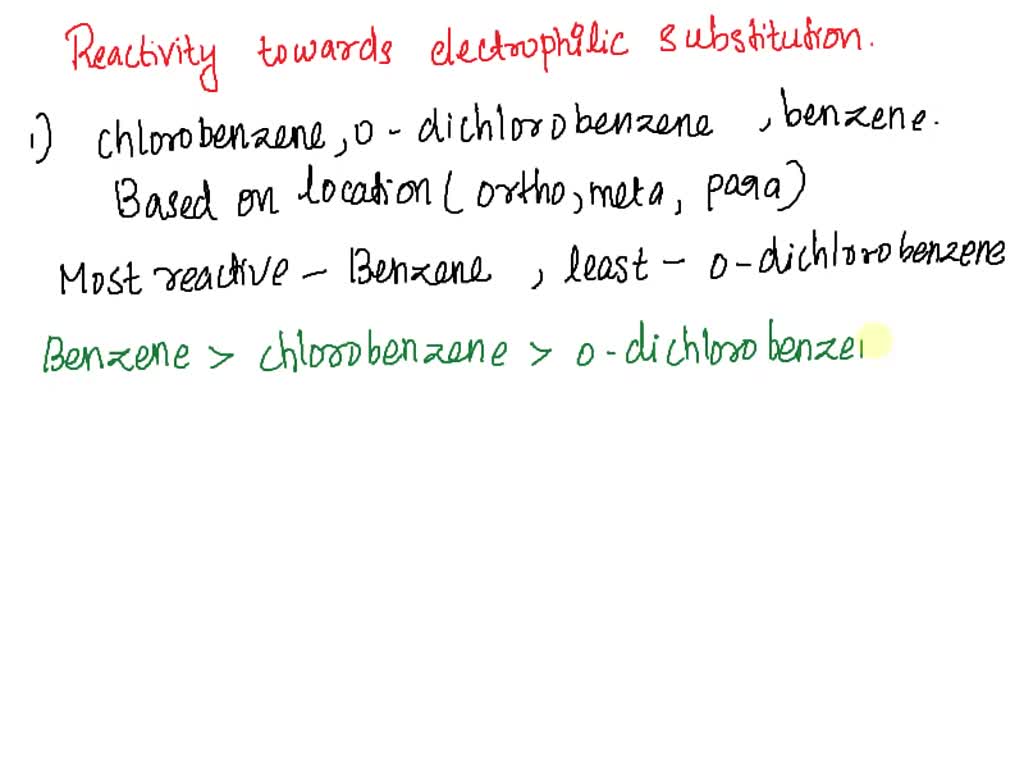 Reactivity towards electrophilic substitution.
1) chlorobenzene, o-dichlorobenzene, benzene.
Based on location (ortho, meta, para)
Most reactive - Benzene, least - o-dichlorobenzene
Benzene > chlorobenzene > o-dichlorobenze